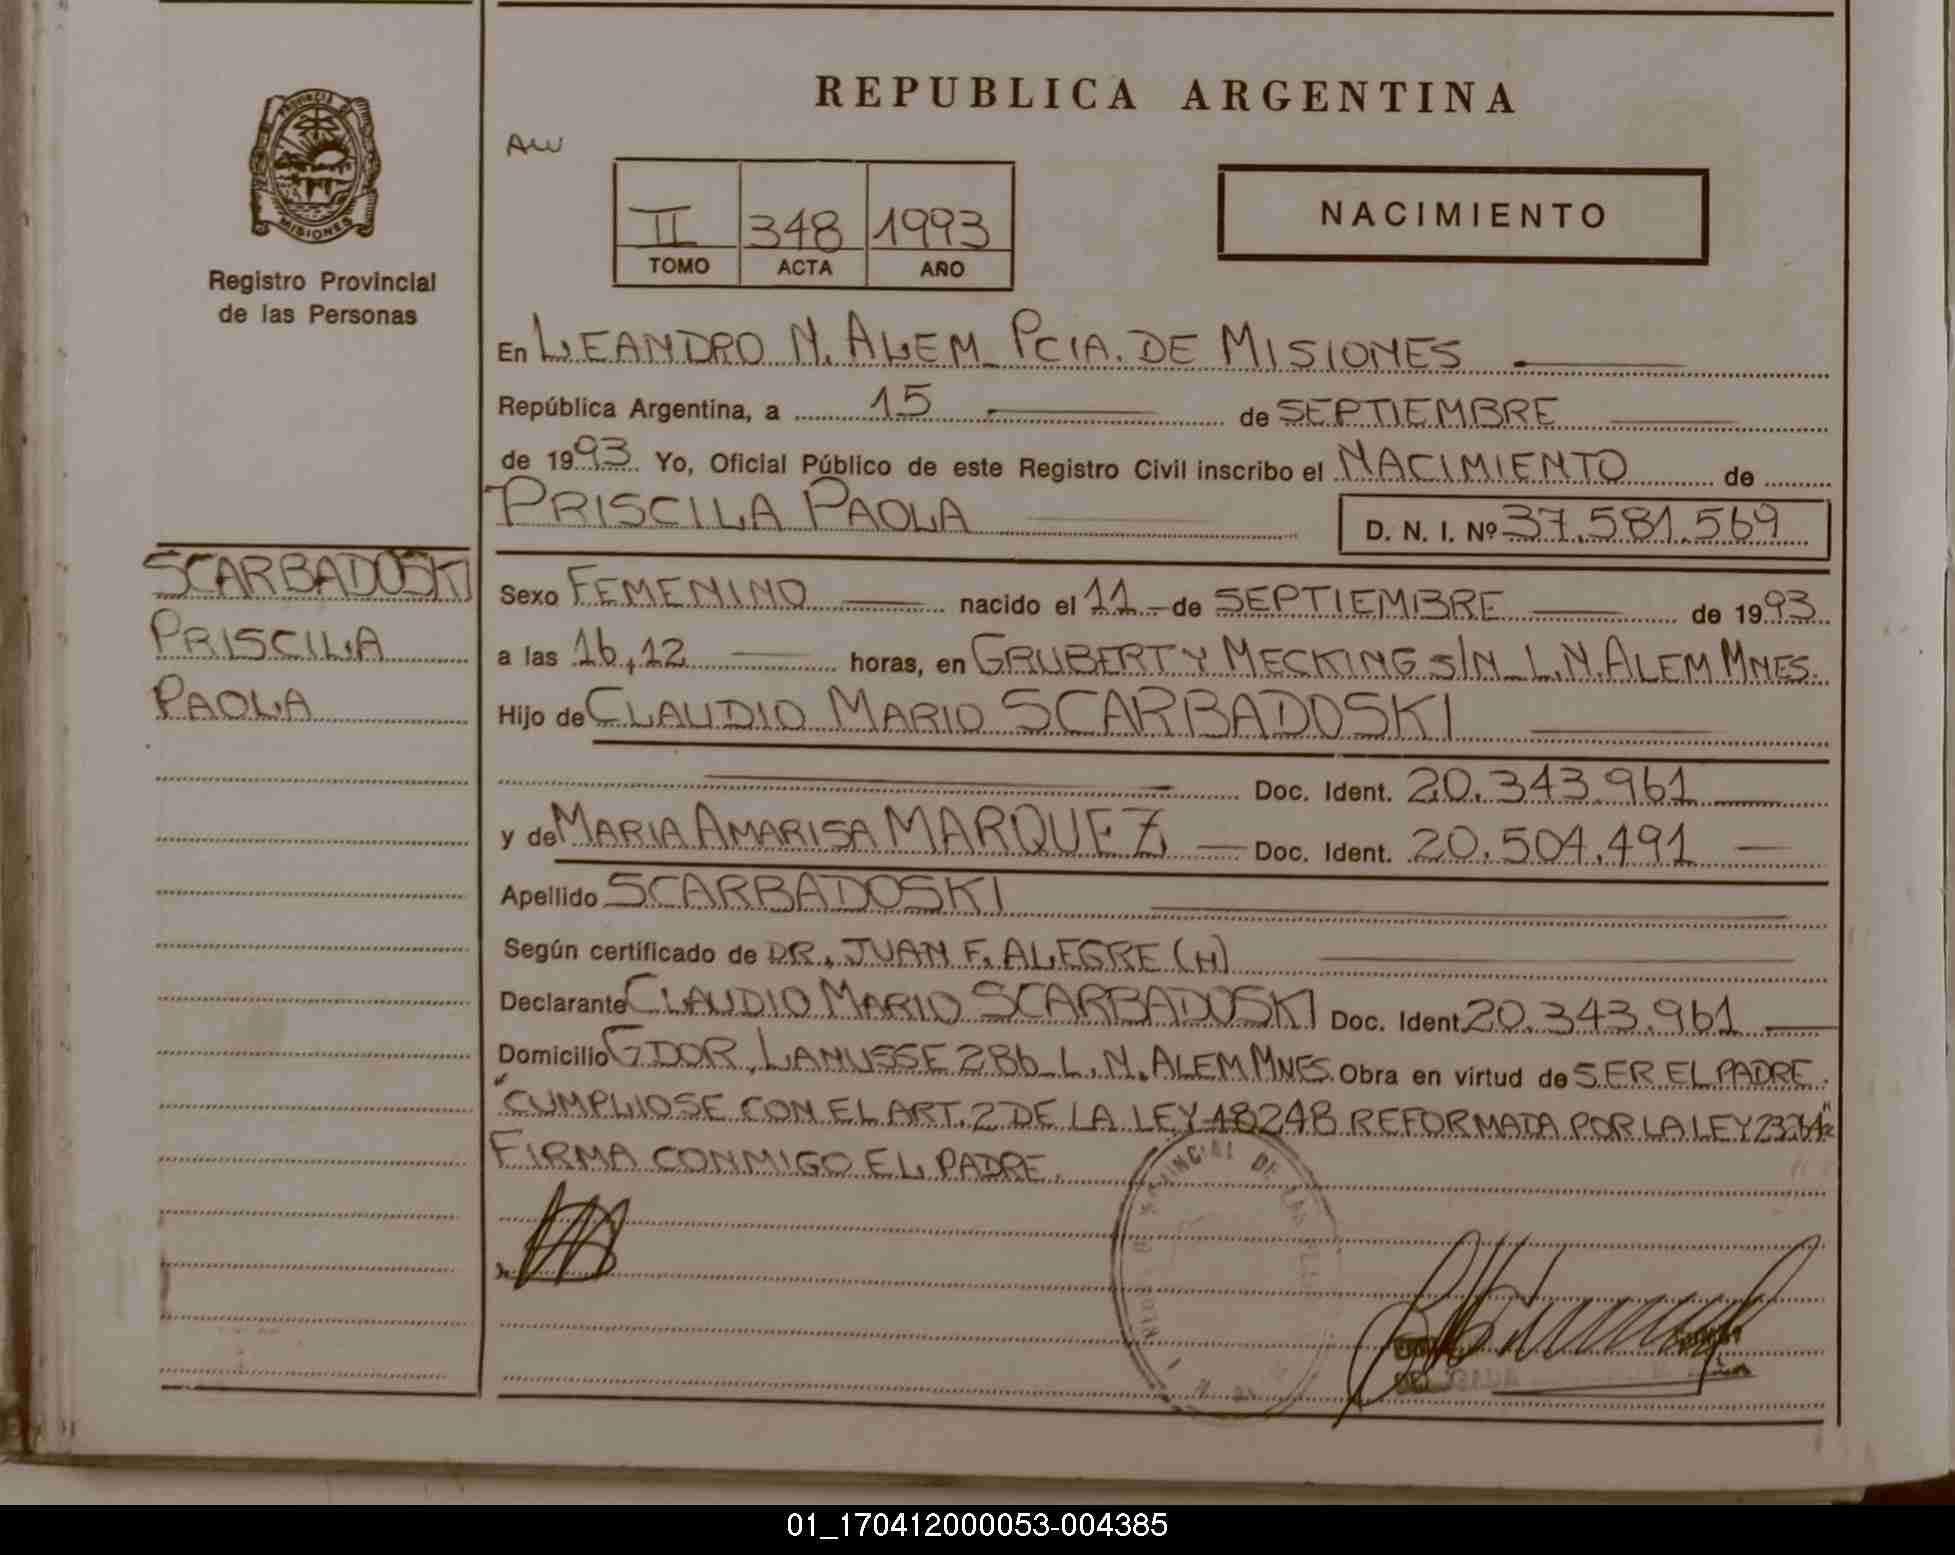 REPUBLICA ARGENTINA
PROVINCIA DE MISIONES
Registro Provincial
de las Personas
AW
II 348 1993
TOMO ACTA AÑO
NACIMIENTO
En LEANDRO N. ALEM PCIA. DE MISIONES
República Argentina, a 15 de SEPTIEMBRE
de 1993 Yo, Oficial Público de este Registro Civil inscribo el NACIMIENTO de
PRISCILA PAOLA D. N. I. Nº 37.581.569
SCARBADOSKI
PRISCILA
PAOLA
Sexo FEMENINO nacido el 11 de SEPTIEMBRE de 1993
a las 16,12 horas, en GRUBERT Y MECKING S/N L.N. ALEM MNES.
Hijo de CLAUDIO MARIO SCARBADOSKI
Doc. Ident. 20.343.961
y de MARIA AMARISA MARQUEZ Doc. Ident. 20.504.491
Apellido SCARBADOSKI
Según certificado de DR. JUAN F. ALEGRE (H)
Declarante CLAUDIO MARIO SCARBADOSKI Doc. Ident. 20.343.961
Domicilio GDOR. LANUSSE 286 L.N. ALEM MNES. Obra en virtud de SER EL PADRE.
"CUMPLIOSE CON EL ART. 2 DE LA LEY 18248 REFORMADA POR LA LEY 23264"
FIRMA CONMIGO EL PADRE.
PROVINCIAL DE LAS
01_170412000053-004385